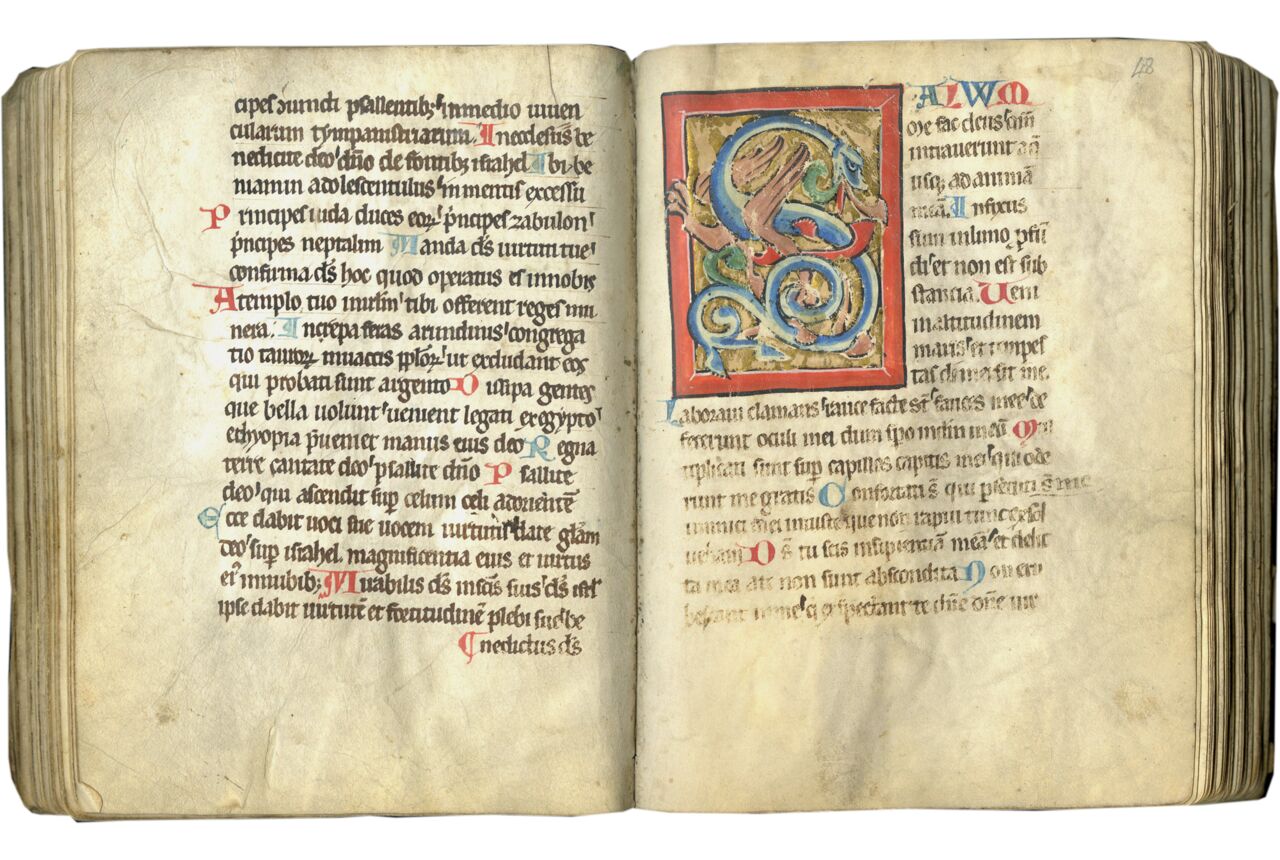 cipes iuncti psallentibꝫ in medio iuuen
cularum tympanistriarum. In ecclesiis be
nedicite deo dn̄o de fontibꝫ israhel Ibi be
niamin adolescentulus in mentis excessu
Principes iuda duces eoꝝ p̄ncipes zabulon
p̄ncipes neptalim Manda ds̄ uirtuti tue
confirma ds̄ hoc quod operatus es in nobis
A templo tuo in irlm̄ tibi offerent reges mu
nera. Increpa feras arundinis congrega
tio tauroꝝ in uaccis pploꝝ ut excludant eos
qui probati sunt argento Dissipa gentes
que bella uolunt uenient legati ex egypto
ethyopia p̄ueniet manus eius deo Regna
terre cantate deo psallite dn̄o Psallite
deo qui ascendit sup celum celi ad orientē
Ecce dabit uoci sue uocem uirtutis date glām
deo sup israhel magnificentia eius et uirtus
ei in nubibꝫ Mirabilis ds̄ in scīs suis ds̄ isrl
ipse dabit uirtutē et fortitudinē plebi sue be
nedictus ds̄
48
SALWM
me fac deus qm̄
intrauerunt aq̄
usqꝫ ad animā
meā Infixus
sum in limo pfū
di et non est sub
stancia. Ueni
in altitudinem
maris et tempes
tas dimersit me.
Laboraui clamans rauce facte st̄ fauces mee de
fecerunt oculi mei dum spo in dm̄ meū Mul
tiplicati sunt sup capillos capitis mei qui ode
runt me gratis Confortati s̄ qui psecuti s̄ me
inimici mei iniuste que non rapui tunc exsol
uebam Ds̄ tu scis insipientiā meā et delic
ta mea a te non sunt abscondita Non eru
bescant in me q exspectant te dn̄e